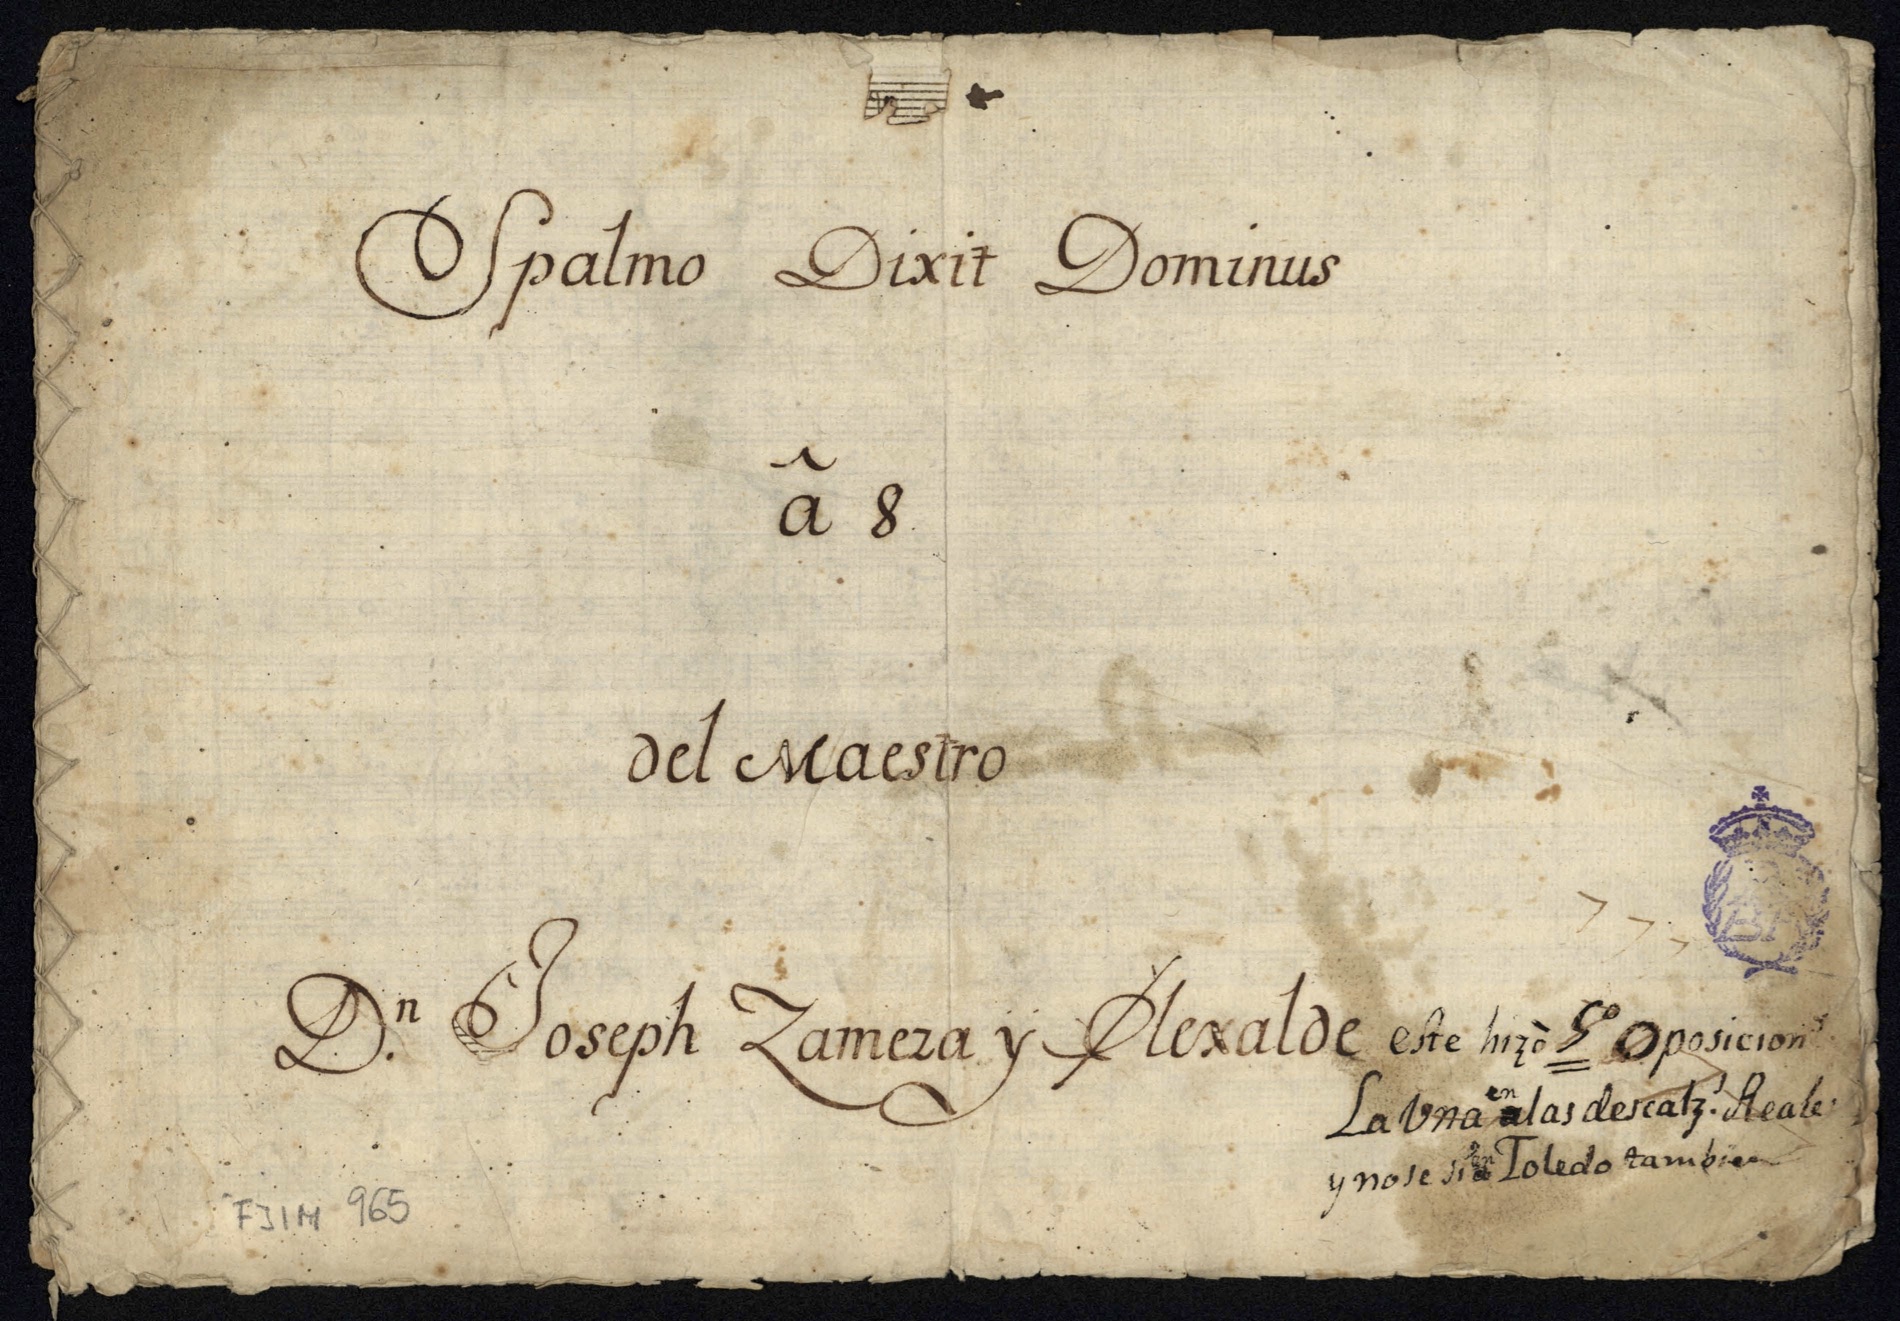 Spalmo Dixit Dominus
â 8
del Maestro
D.n Joseph Zameza y Elexalde este hizò Oposicion.s
La Vna en las descalz.s Reales
y no se si en Toledo tambien
FJIM 965
BN